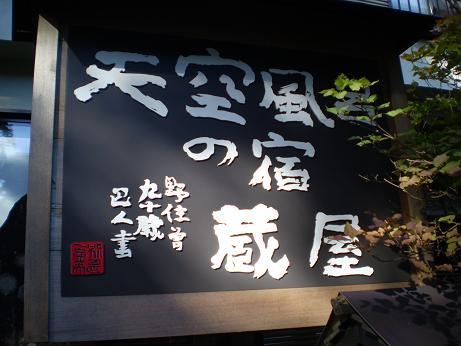 天空風呂
の宿
蔵屋
野住首
九十歳
巴人書